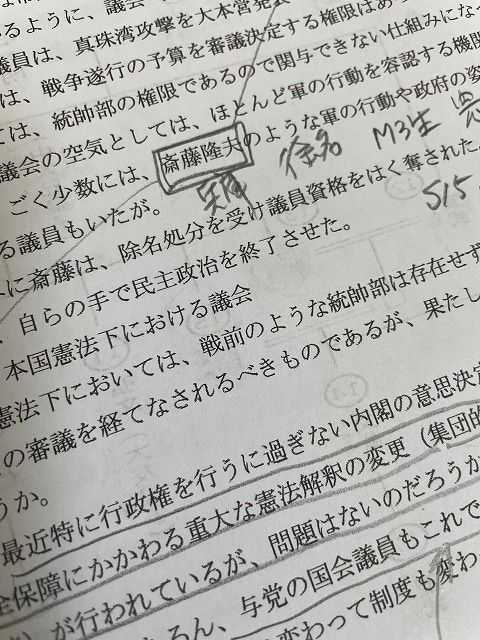 るように、議会
議員は、真珠湾攻撃を大本営発表
は、戦争遂行の予算を審議決定する権限はあ
ては、統帥部の権限であるので関与できない仕組みにな
議会の空気としては、ほとんど軍の行動を容認する機関
ごく少数には、斎藤隆夫のような軍の行動や政府の姿
兵庫 除名 M3生
る議員もいたが。
S15.
に斎藤は、除名処分を受け議員資格をはく奪された。
、自らの手で民主政治を終了させた。
本国憲法下における議会
憲法下においては、戦前のような統帥部は存在せず
の審議を経てなされるべきものであるが、果たし
うか。
最近特に行政権を行うに過ぎない内閣の意思決定
全保障にかかわる重大な憲法解釈の変更（集団的
）が行われているが、問題はないのだろうか
ろん、与党の国会議員もこれで
変わって制度も変わ